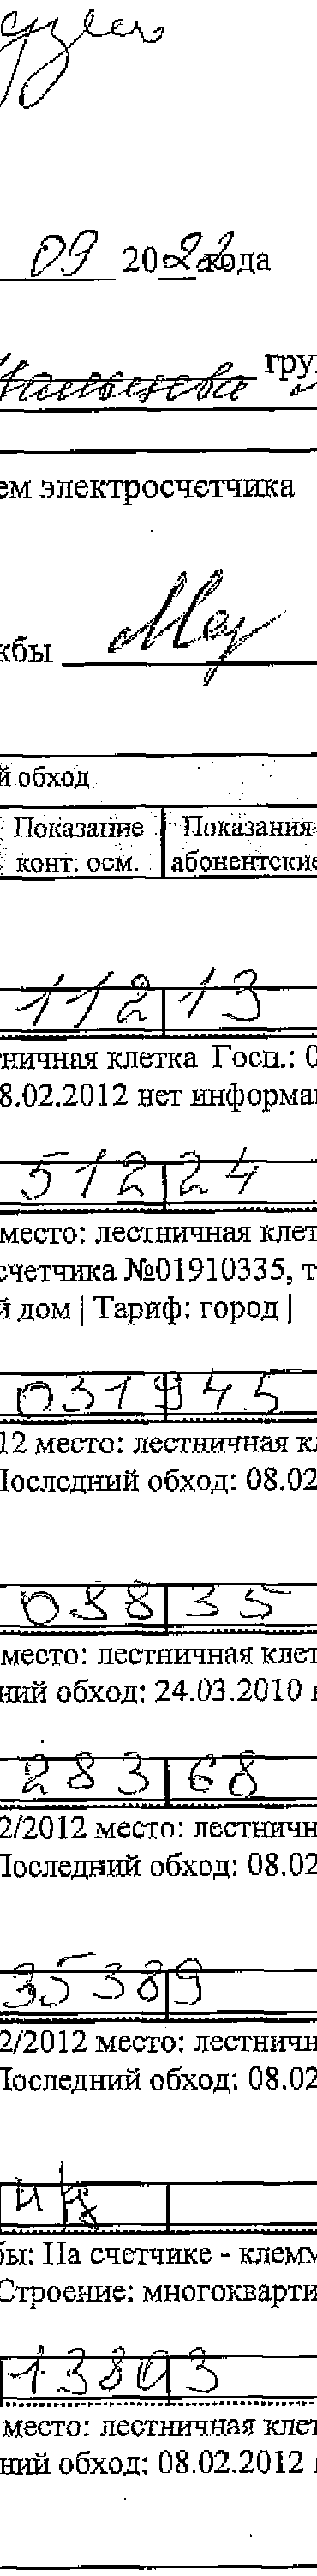 09 20 22 года
гру
ем электросчетчика
жбы
й обход
Показание Показания
конт. осм. абонентские
112 13
тничная клетка Госп.: 0
8.02.2012 нет информа
512 24
место: лестничная клет
счетчика №01910335, т
й дом | Тариф: город |
031945
12 место: лестничная кл
Последний обход: 08.02
088 35
место: лестничная клет
ний обход: 24.03.2010
283 68
2/2012 место: лестничн
Последний обход: 08.02
35389
2/2012 место: лестничн
Последний обход: 08.02
бы: На счетчике - клемм
Строение: многокварти
13803
место: лестничная клет
ний обход: 08.02.2012